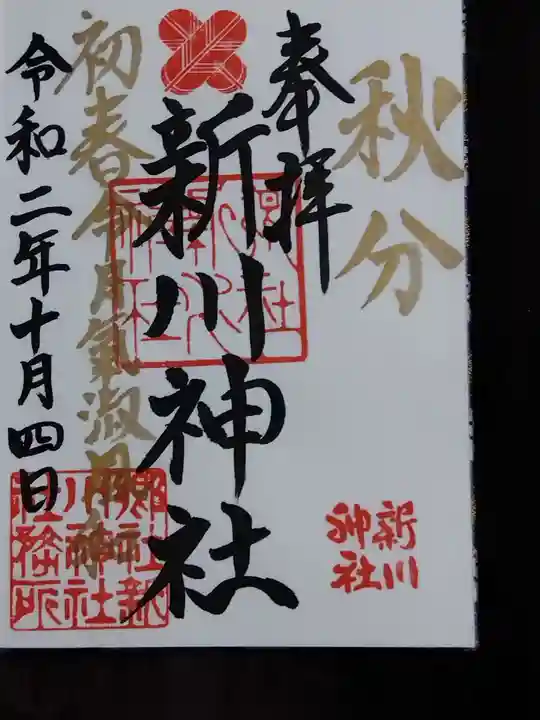 秋分
奉拝
新川神社
初春令月氣淑風
令和二年十月四日
郷社
新川
神社
郷社新
川神社
社務所
新川
神社